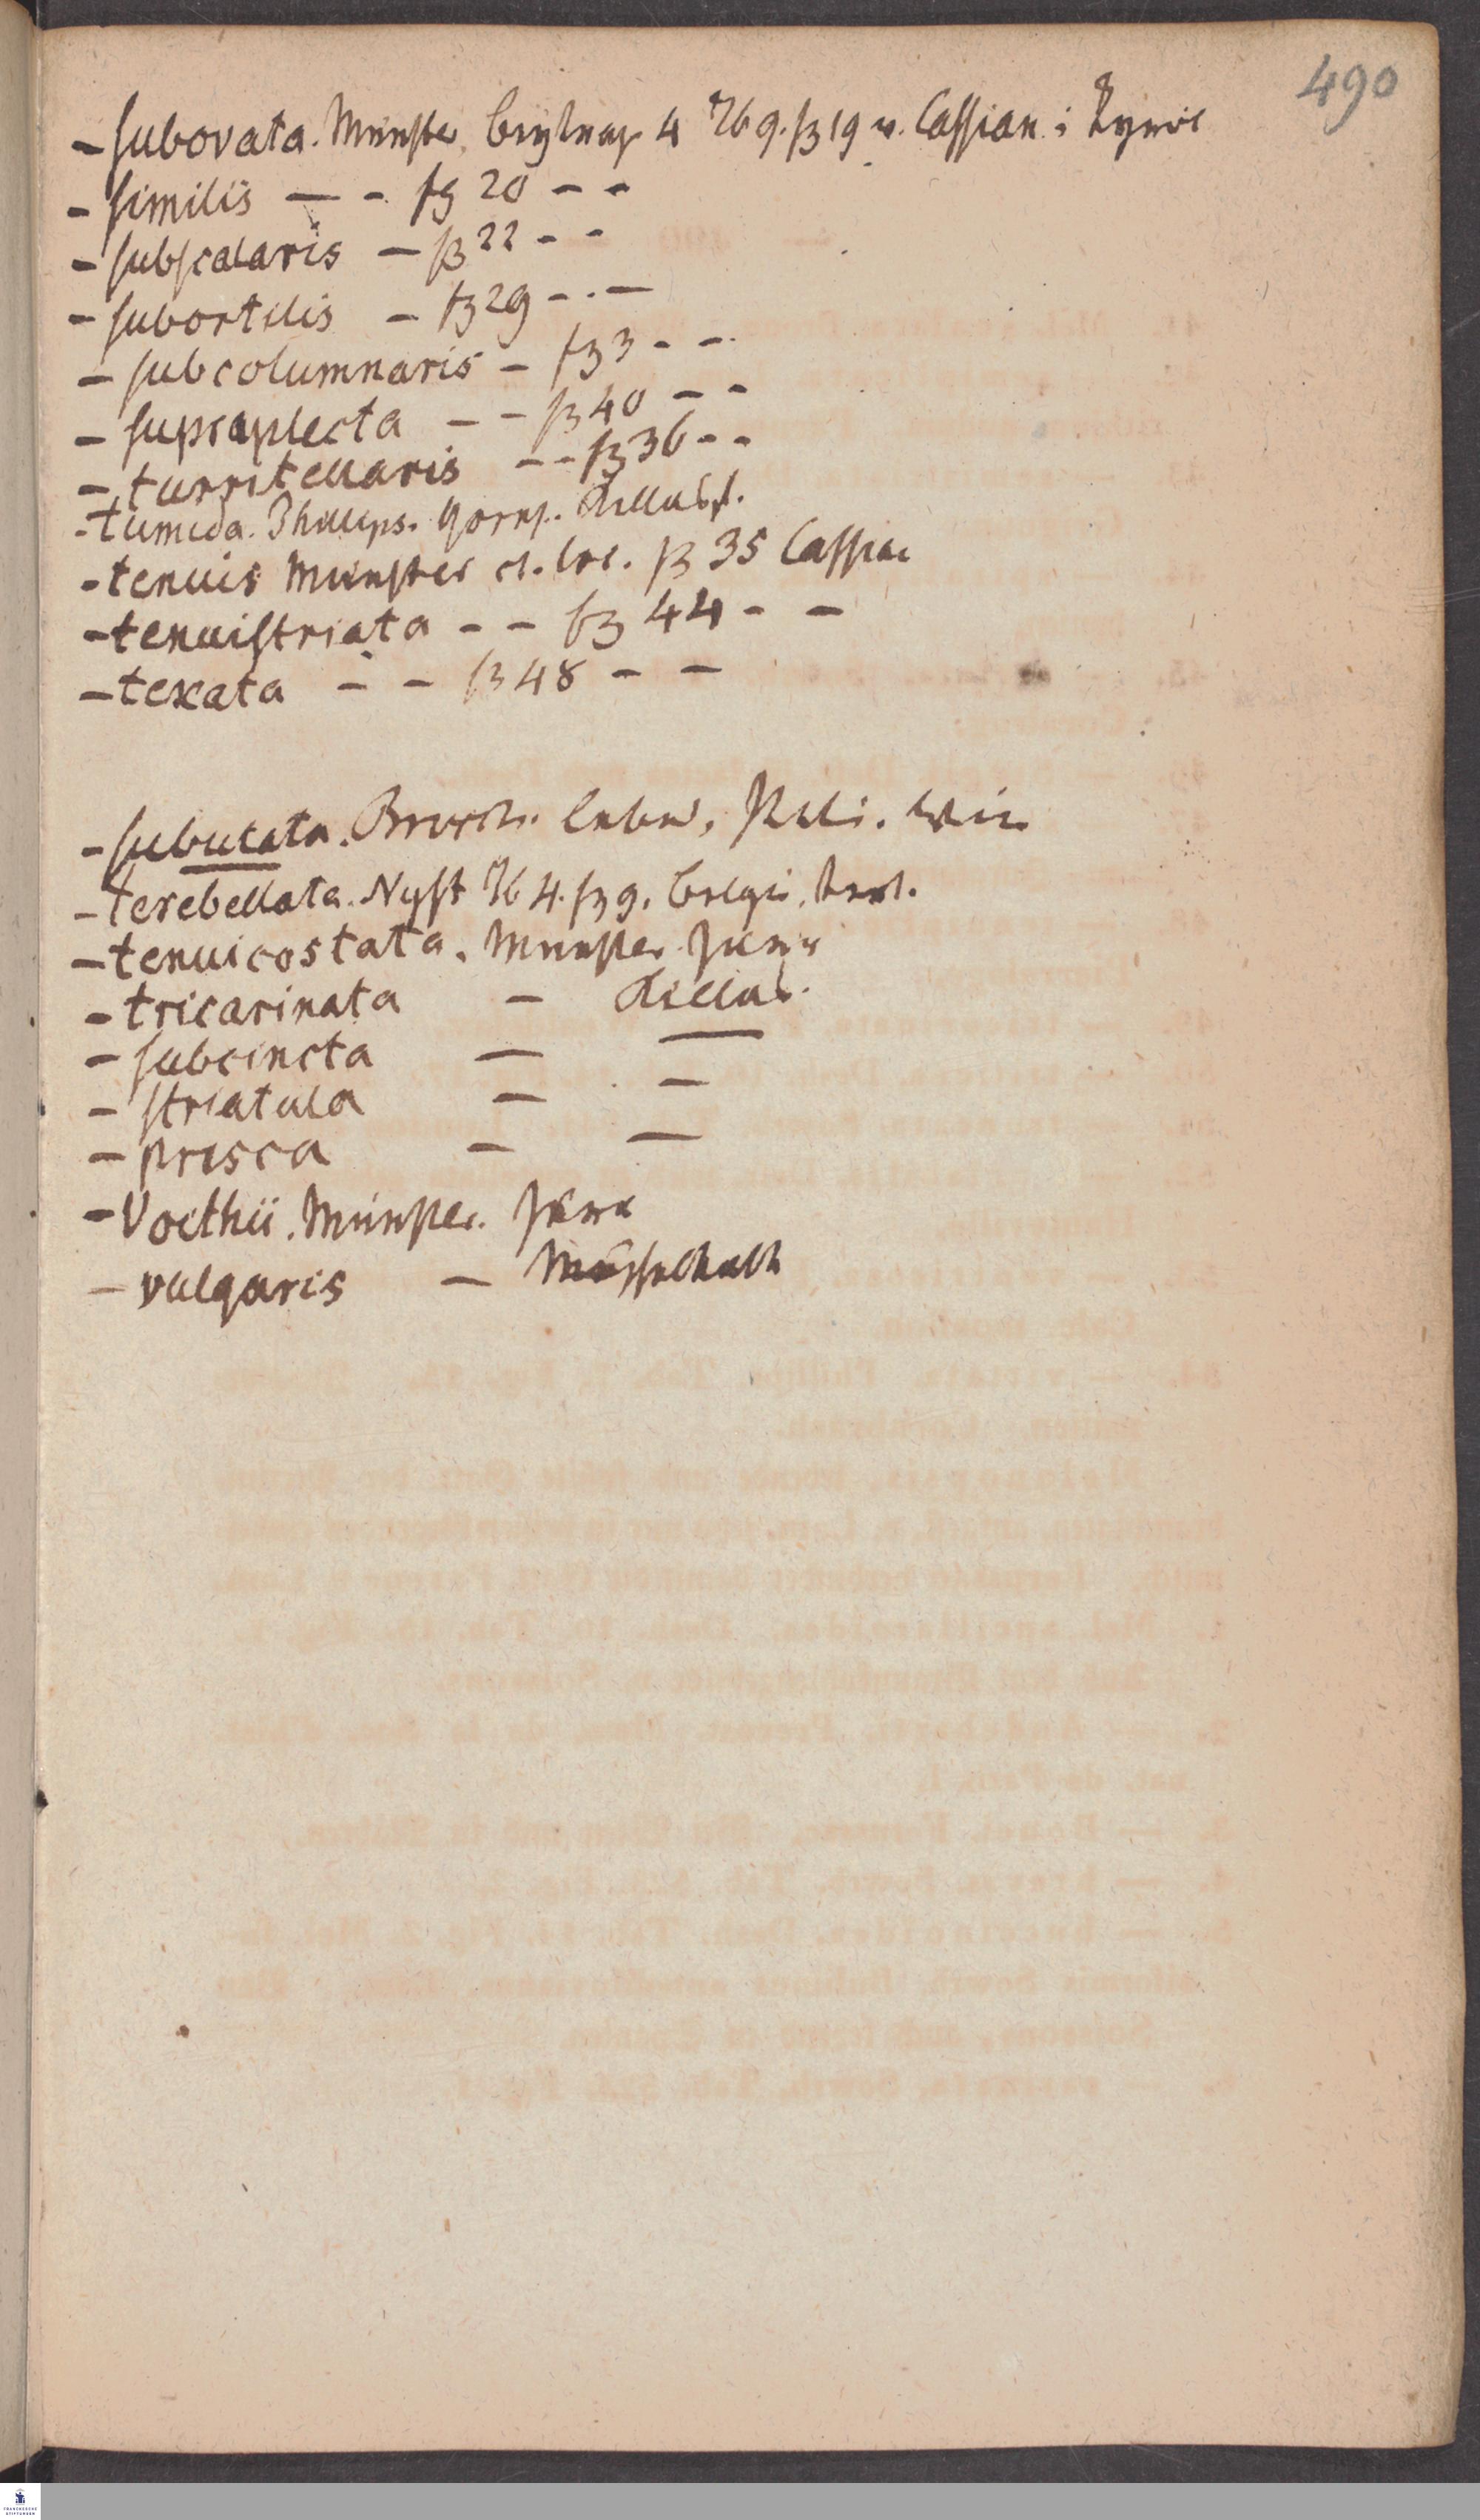 490
- subovata. Münster. Beytraege 4 Tb 9. fg 19 v. Cassian i Tyrol
- similis — - fg 20 - -
- subscalaris — fg 22 - -
- subortilis — fg 29 - . —
- subcolumnaris - fg 3 - -.
- supraplecta - - fg 40 - -
- turritellaris - - fg 36 - -
- tumida. Phillips. Yorks.
- tenuis Münster a. loc. fg 35 Cassian
- tenuistriata - - fg 44 - -
- texata - - fg 48 - -
- subulata. Brocch. Lebend,
- terebellata. Nyst Tb 4. fg 9. Belgie. tert.
- tenuicostata. Münster. Jura
- tricarinata -
- subcincta — —
- striatula — —
- prisca — —
- Voithii. Münster. Jura
- vulgaris — Muschelkalk
FRANCKESCHE
STIFTUNGEN